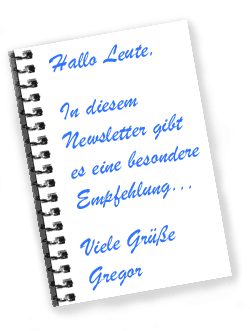 Hallo Leute,
In diesem
Newsletter gibt
es eine besondere
Empfehlung...
Viele Grüße
Gregor